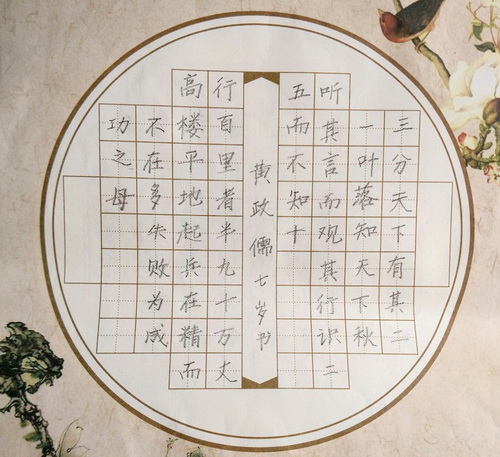 三分天下有其二
一叶落知天下秋
听其言而观其行识二
五而不知十
黄政儒七岁书
行百里者半九十万丈
高楼平地起兵在精而
不在多失败为成
功之母